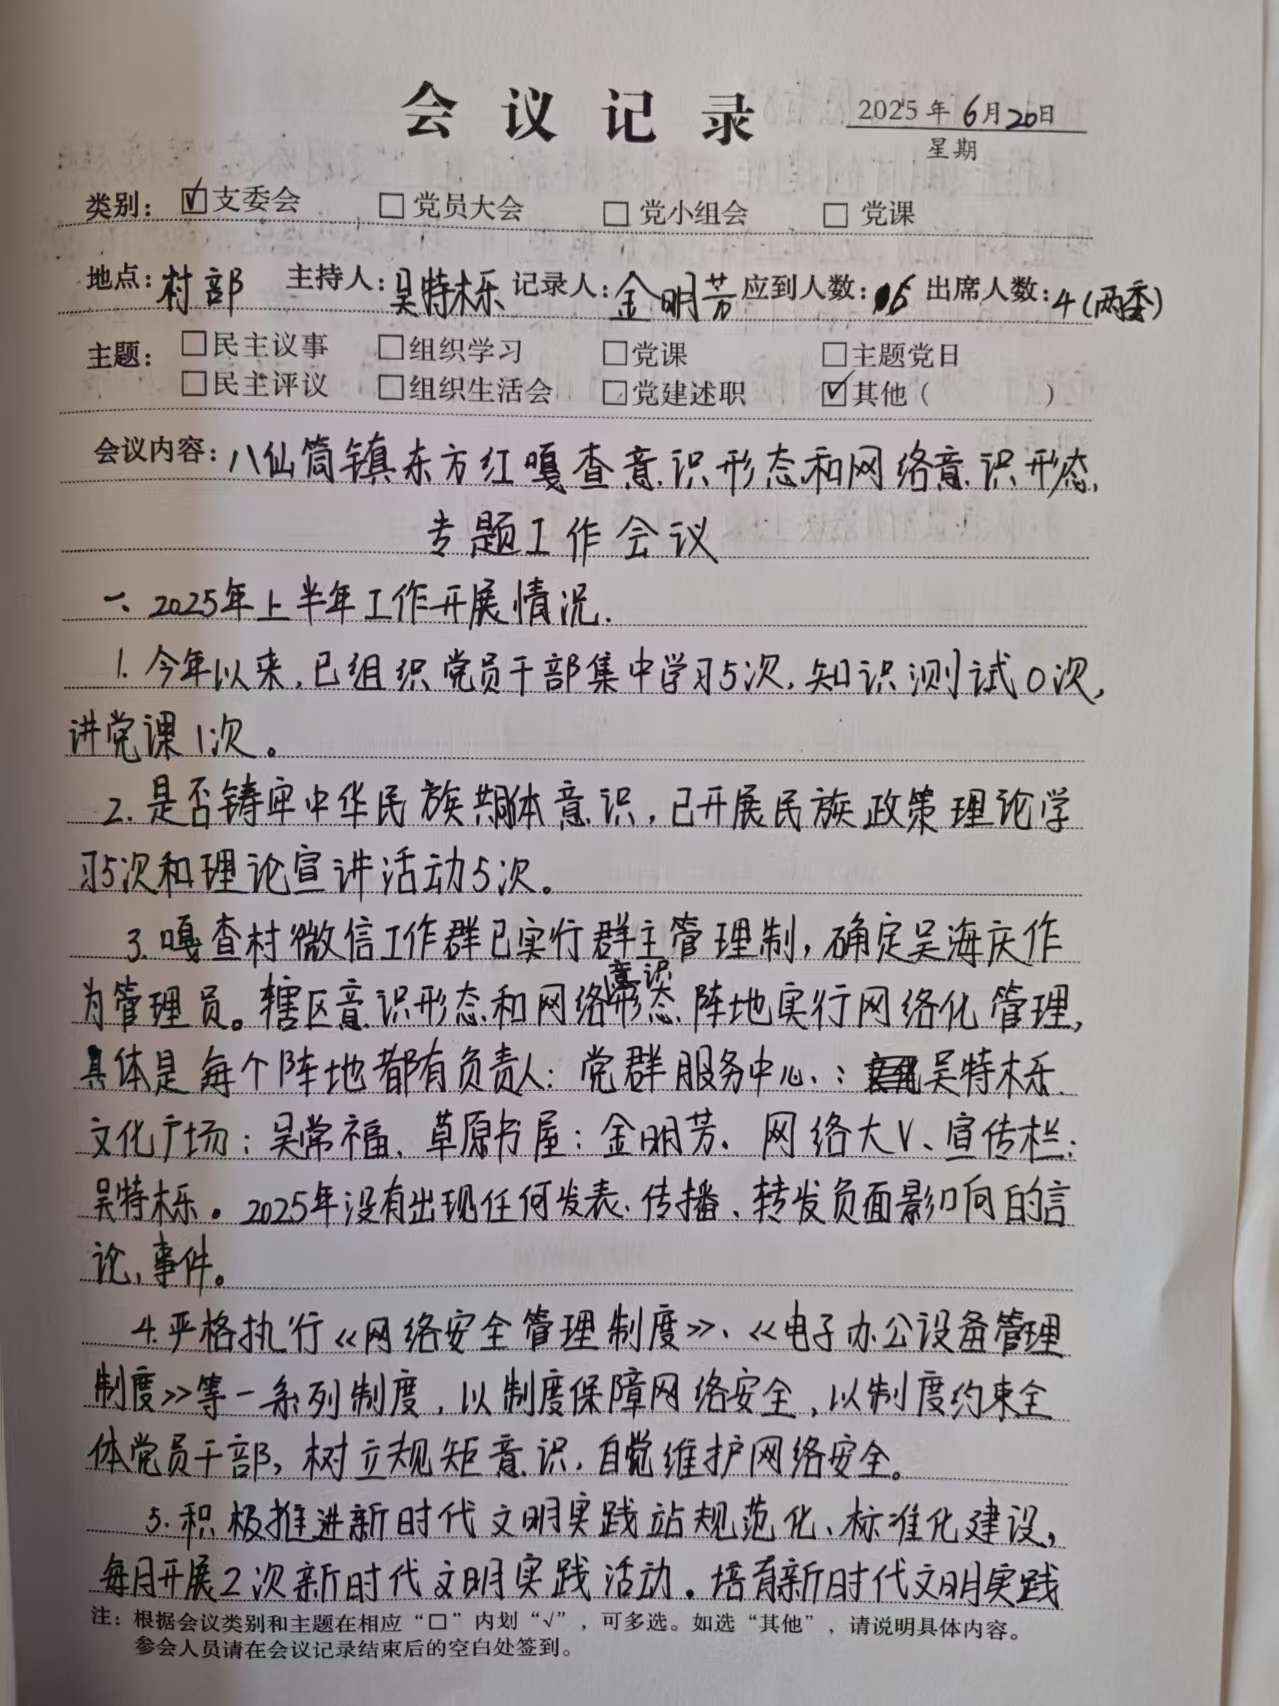 会议记录 2025年6月20日
星期
类别: ☑支委会 □党员大会 □党小组会 □党课
地点:村部 主持人:吴特木乐 记录人:金明芳 应到人数:5 出席人数:4(两委)
主题: □民主议事 □组织学习 □党课 □主题党日
□民主评议 □组织生活会 □党建述职 ☑其他( )
会议内容:八仙筒镇东方红嘎查意识形态和网络意识形态
专题工作会议
一、2025年上半年工作开展情况.
1.今年以来,已组织党员干部集中学习5次,知识测试0次,
讲党课1次。
2.是否铸牢中华民族共同体意识,已开展民族政策理论学
习5次和理论宣讲活动5次。
3.嘎查村微信工作群已实行群主管理制,确定吴海庆作
为管理员。辖区意识形态和网络意识形态阵地实行网络化管理,
具体是每个阵地都有负责人:党群服务中心、:吴特木乐.
文化广场:吴常福、草原书屋:金明芳、网络大V、宣传栏:
吴特木乐。2025年没有出现任何发表、传播、转发负面影响的言
论,事件。
4.严格执行《网络安全管理制度》、《电子办公设备管理
制度》等一系列制度,以制度保障网络安全,以制度约束全
体党员干部,树立规矩意识,自觉维护网络安全。
5.积极推进新时代文明实践站规范化、标准化建设,
每月开展2次新时代文明实践活动。培育新时代文明实践
注:根据会议类别和主题在相应“□”内划“√”,可多选。如选“其他”,请说明具体内容。
参会人员请在会议记录结束后的空白处签到。